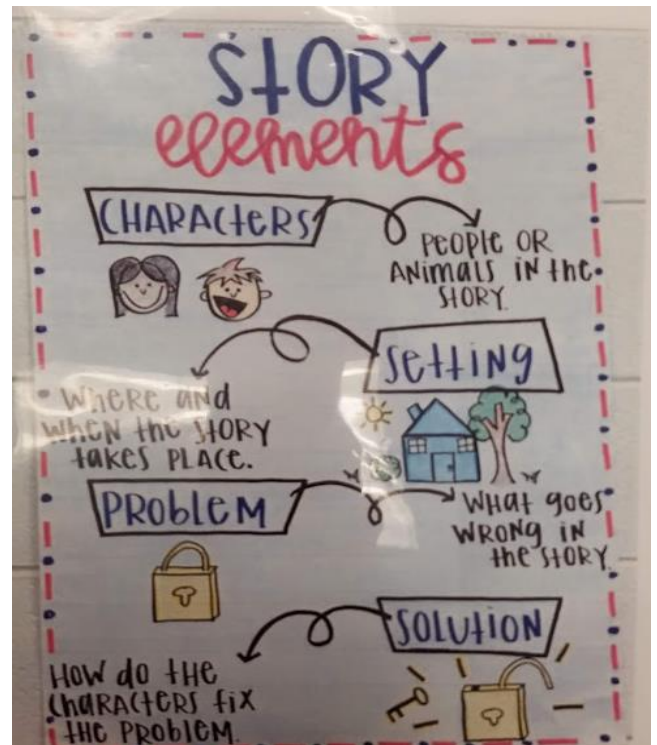 STORY
elements
CHARACTERS
PEOPLE OR
ANIMALS IN THE
STORY.
SETTING
WHERE AND
WHEN THE STORY
TAKES PLACE.
PROBLEM
WHAT GOES
WRONG IN
THE STORY.
SOLUTION
HOW DO THE
CHARACTERS FIX
THE PROBLEM.